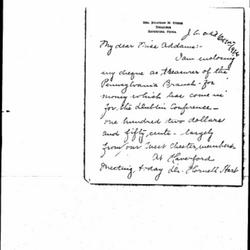 TREASURER
HAVERFORD, PENNA.
My dear Miss Addams:-
I am enclosing
my cheque as treasurer of the
Pennsylvania Branch - for
money which has come in
for the Dublin Conference -
one hundred two dollars
and fifty cents - largely
from our West Chester members
At Haverford
Meeting today Dr. Hornell Hart